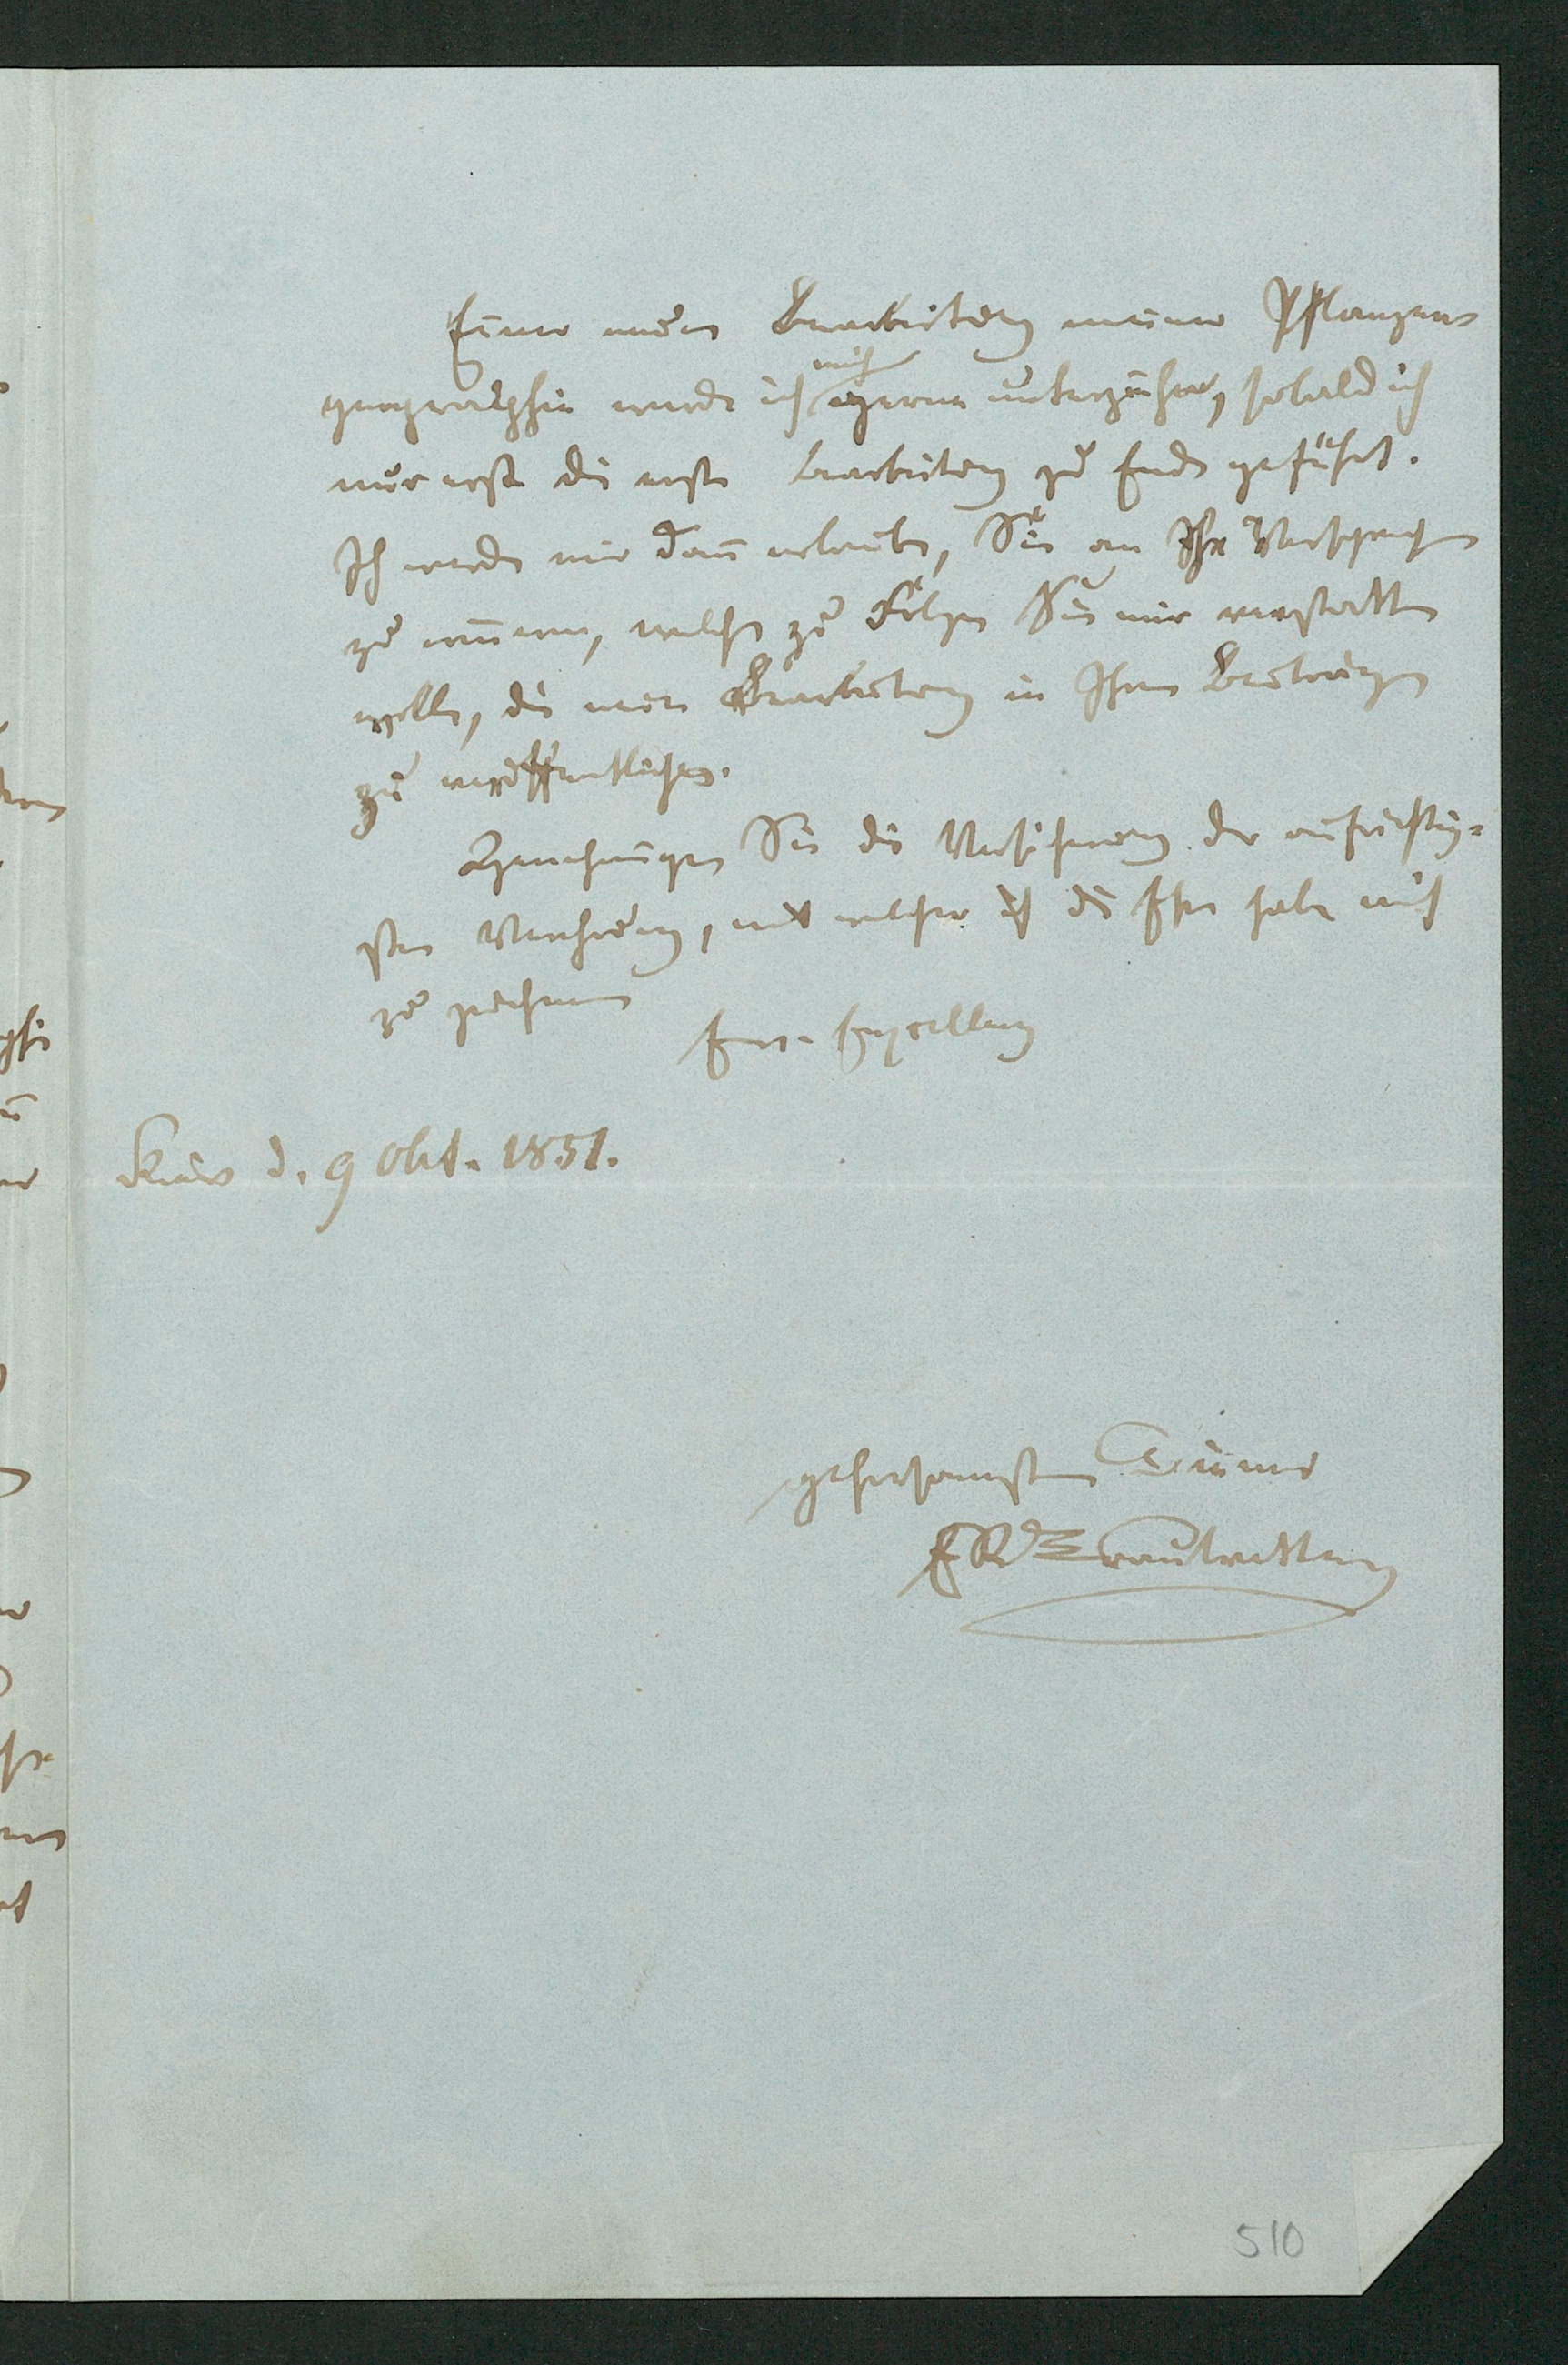 Einer neuen Bearbeitung meiner Pflanzen-
geographie werde ich mich gerne unterziehen, sobald ich
nur erst die erste Bearbeitung zu Ende geführt.
Ich werde mir dann erlauben, Sie an Ihr Versprechen
zu erinnern, welchem zu Folge Sie mir verstatten
wollen, die neue Bearbeitung in Ihren Beiträgen
zu veröffentlichen.
Genehmigen Sie die Versicherung der aufrichtig-
sten Verehrung, mit welcher ich die Ehre habe mich
zu zeichnen
Ew. Excellenz
Kiew d. 9 Okt. 1851.
gehorsamsten Diener
ER v Trautvetter
510